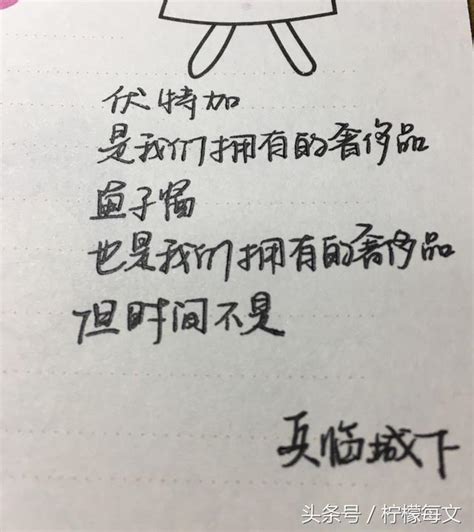 伏特加
是我们拥有的奢侈品
鱼子酱
也是我们拥有的奢侈品
但时间不是
兵临城下
头条号／柠檬每文